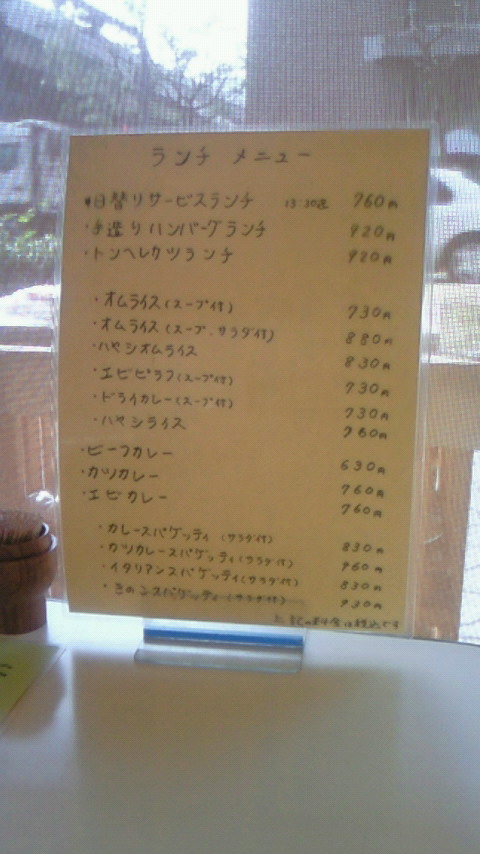 ランチ メニュー
・日替りサービスランチ 13:30迄 760円
・手造りハンバーグランチ 920円
・トンヘレカツランチ 920円
・オムライス(スープ付) 730円
・オムライス(スープ・サラダ付) 880円
・ハヤシオムライス 830円
・エビピラフ(スープ付) 730円
・ドライカレー(スープ付) 730円
・ハヤシライス 760円
・ビーフカレー 630円
・カツカレー 760円
・エビカレー 760円
・カレースパゲッティ (サラダ付) 830円
・カツカレースパゲッティ(サラダ付) 960円
・イタリアンスパゲッティ(サラダ付) 830円
・きのこスパゲッティ(サラダ付) 930円
上記の料金は税込です